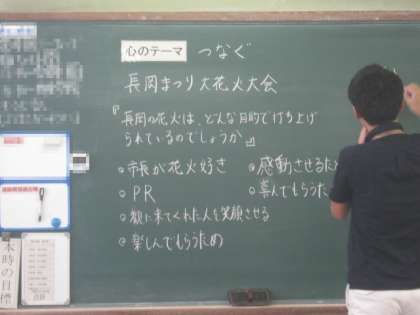 心のテーマ つなぐ
長岡まつり大花火大会
『長岡の花火は、どんな目的で打ち上げ
られているのでしょうか』
・市長が花火好き
・PR
・観に来てくれた人を笑顔させる
・楽しんでもらうため
・感動させるた
・喜んでもらうた
本時の目標